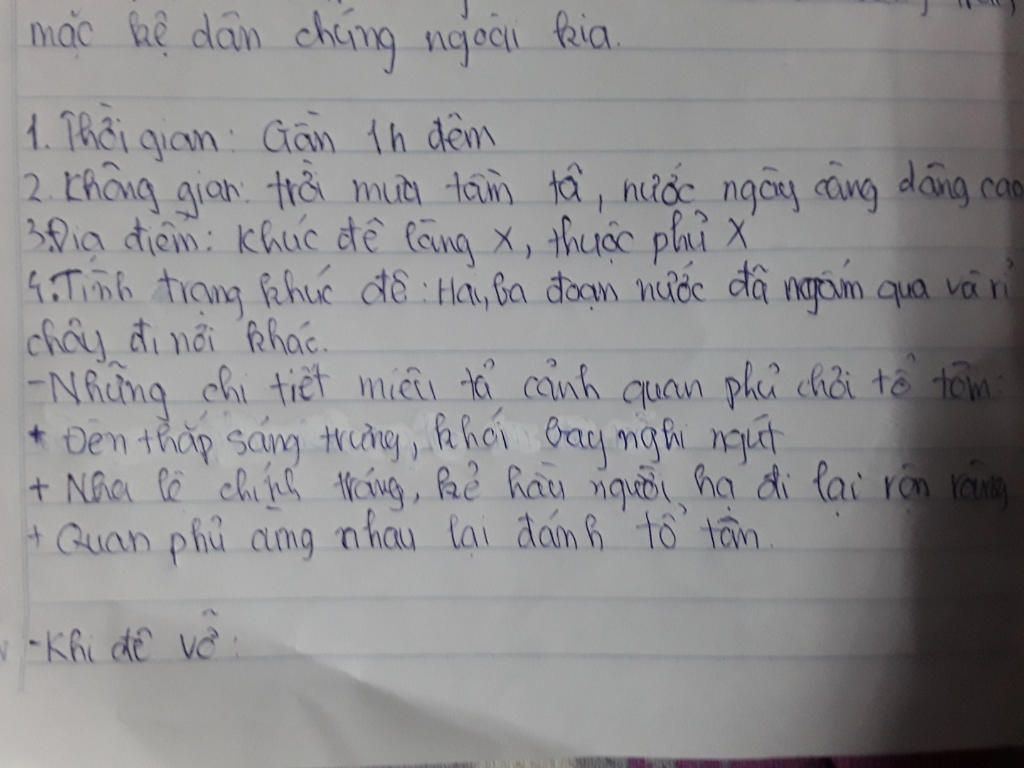 mặc kệ dân chúng ngoài kia.
1. Thời gian: Gần 1h đêm
2. Không gian: trời mưa tầm tã, nước ngày càng dâng cao
3. Địa điểm: Khúc đê làng X, thuộc phủ X
4. Tình trạng khúc đê: Hai, ba đoạn nước đã ngấm qua và rỉ
chảy đi nơi khác.
- Những chi tiết miêu tả cảnh quan phủ chơi tổ tôm:
+ Đèn thắp sáng trưng, khói bay nghi ngút
+ Nha lệ chỉnh tráng, kẻ hầu người hạ đi lại rộn ràng
+ Quan phủ cùng nhau lại đánh tổ tôm.
- Khi đê vỡ: